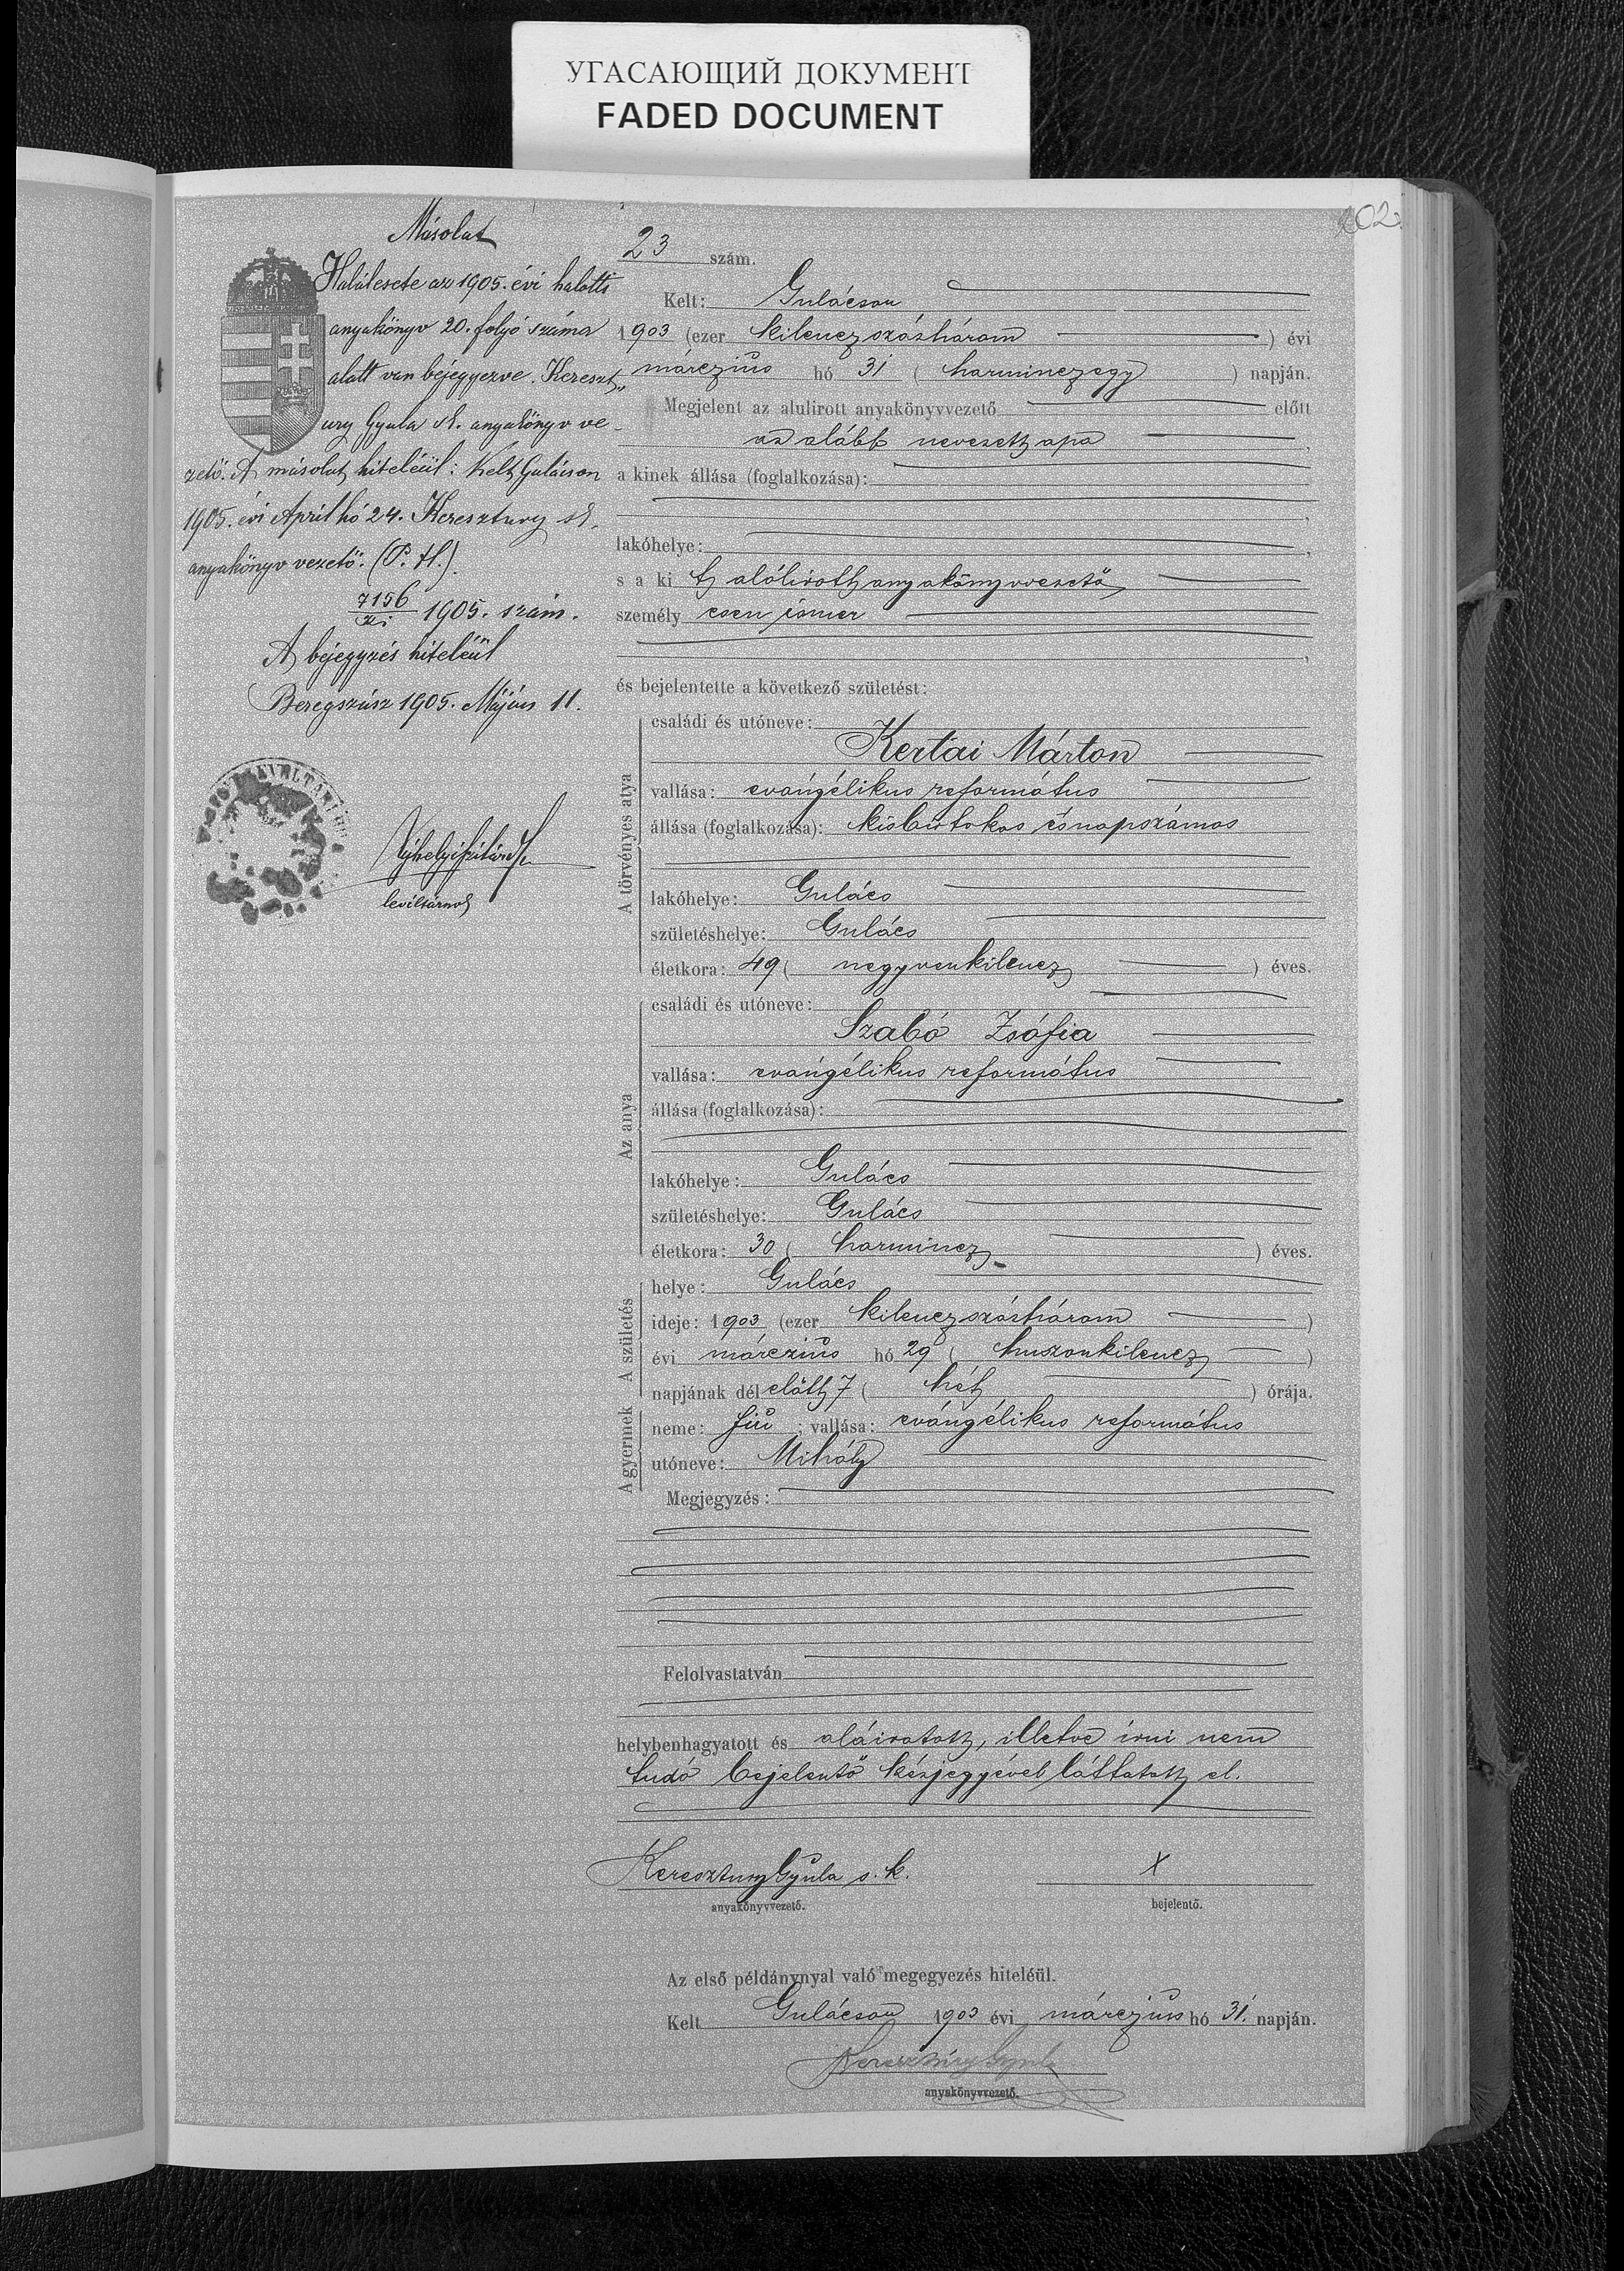 УГАСАЮЩИЙ ДОКУМЕНТ
FADED DOCUMENT
102.
Másolat
Halálesete az 1905. évi halotti
anyakönyv 20. folyó száma
alatt van bejegyezve. Kereszt„
ury Gyula sk. anyakönyv ve-
zető. A másolat hiteléül: Kelt Gulácson
1905. évi April hó 24. Keresztury sk.
anyakönyv vezető. (P. H.)
7156/ 1905. szám.
A bejegyzés hiteléül
Beregszász 1905. Május 11.
levéltárnok
23 szám.
Kelt: Gulácson
1903 (ezer kilenczszázhárom ) évi
márczius hó 31 ( harminczegy ) napján.
Megjelent az alulirott anyakönyvvezető előtt
az alább nevezett apa ,
a kinek állása (foglalkozása):
,
lakóhelye: ,
s a ki t alólirott anyakönyvvezető
személyesen ismer
,
és bejelentette a következő születést:
A törvényes atya
családi és utóneve:
Kertai Márton
vallása: evángélikus református
állása (foglalkozása): kisbirtokos és napszámos
lakóhelye: Gulács
születéshelye: Gulács
életkora: 49 ( negyvenkilencz ) éves.
Az anya
családi és utóneve:
Szabó Zsófia
vallása: evángélikus református
állása (foglalkozása):
lakóhelye: Gulács
születéshelye: Gulács
életkora: 30 ( harmincz ) éves.
A gyermek A születés
helye: Gulács
ideje: 1903 (ezer kilenczszázhárom )
évi márczius hó 29 ( huszonkilencz )
napjának dél előtt 7 ( hét ) órája.
neme: fiú ; vallása: evángélikus református
utóneve: Mihály
Megjegyzés:
Felolvastatván
helybenhagyatott és aláiratott, illetve írni nem
tudó bejelentő kézjegyével láttatott el.
Keresztury Gyula s. k. X
anyakönyvvezető. bejelentő.
Az első példánynyal való megegyezés hiteléül.
Kelt Gulácson 1903 évi márczius hó 31. napján.
Keresztury Gyula
anyakönyvvezető.